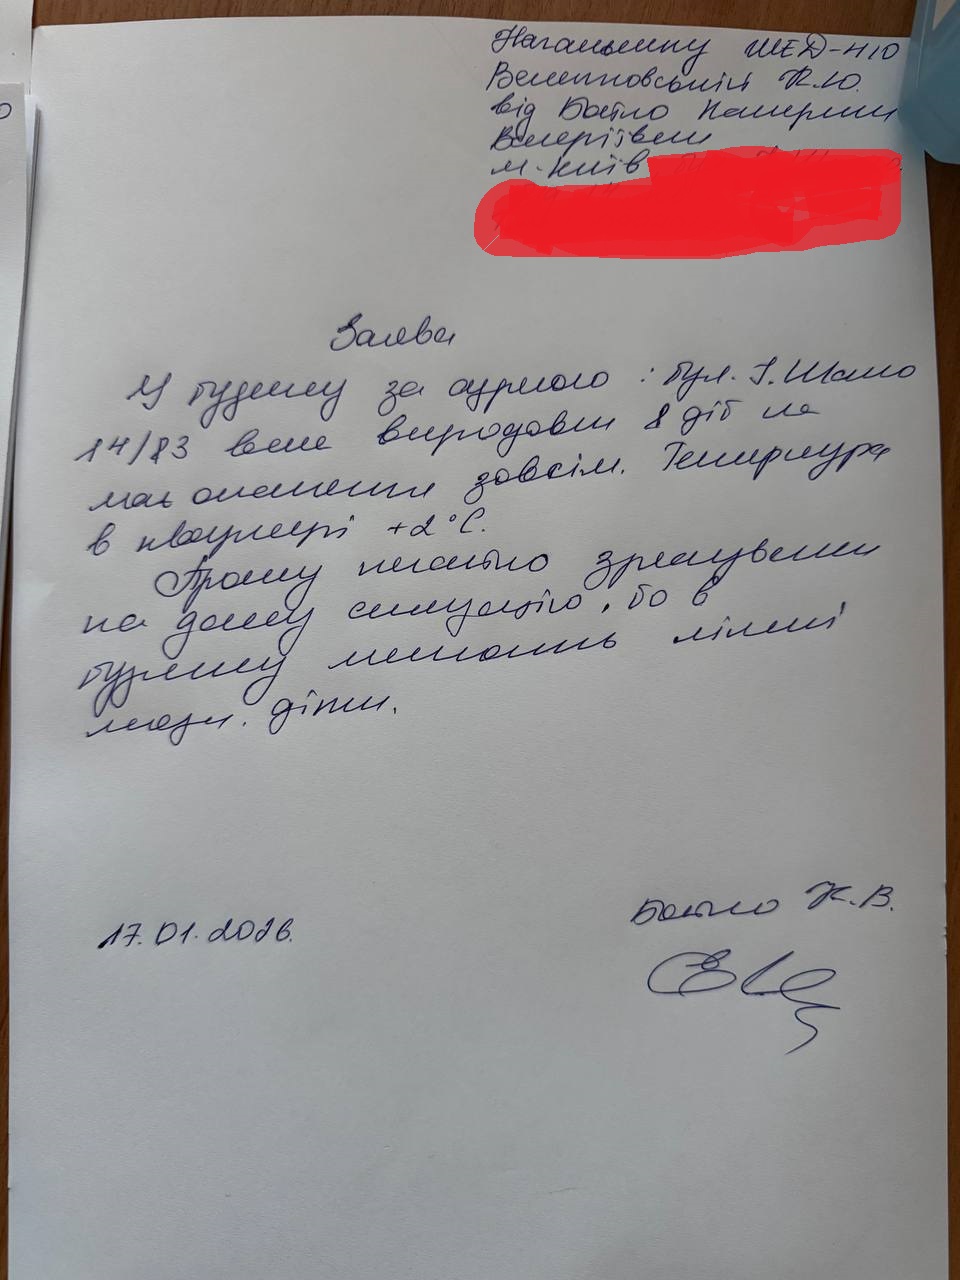 Начальнику ЖЕД-410
від Бойко Катерини
Валеріївни
м. Київ
Заява
У будинку за адресою : бул. І. Шамо
14/83 вже впродовж 8 діб не
має опалення зовсім. Температура
в квартирі +2°С.
Прошу негайно зреагувати
на дану ситуацію, бо в
будинку мешкають літні
люди, діти.
17.01.2026.
К.В.